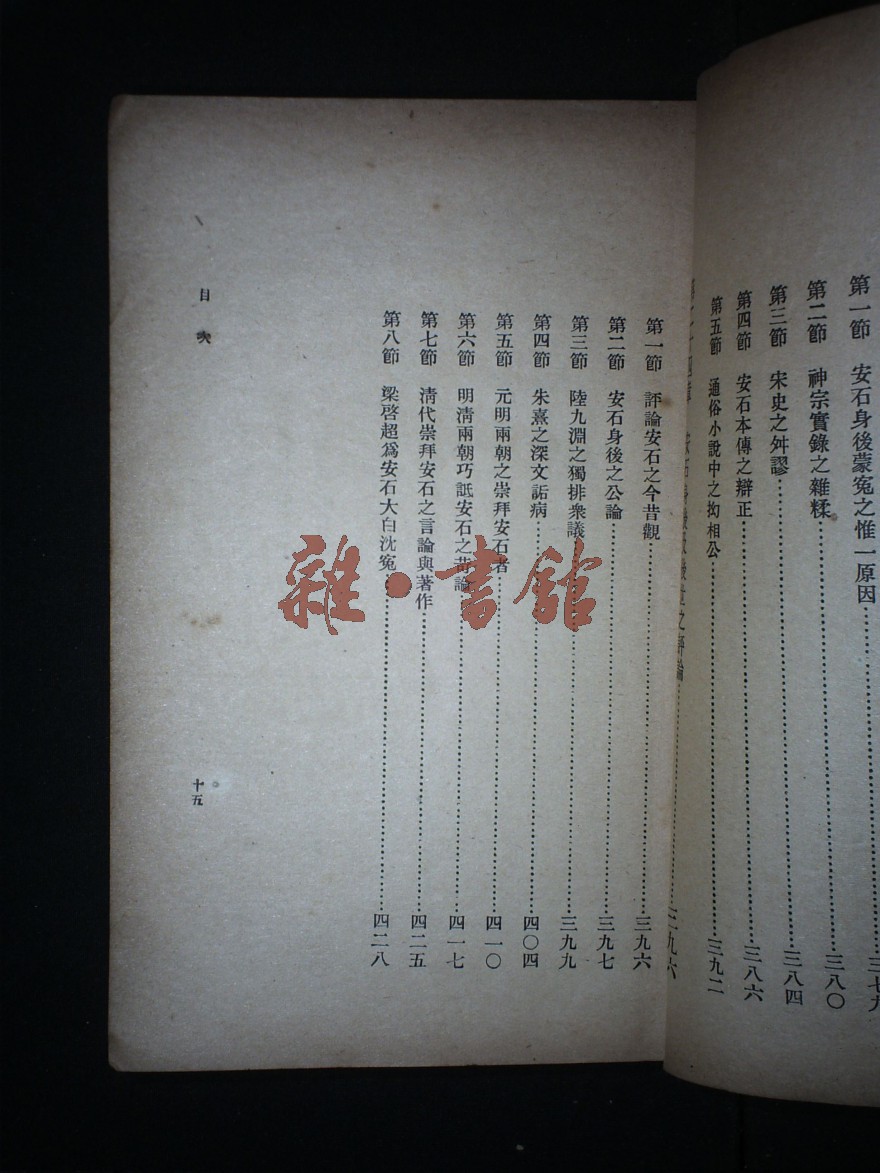 第一節　安石身後蒙冤之惟一原因………三七九
第二節　神宗實錄之雜糅………三八〇
第三節　宋史之舛謬………三八四
第四節　安石本傳之辯正………三八六
第五節　通俗小說中之拗相公………三九二
之評論………三九六
第一節　評論安石之今昔觀………三九六
第二節　安石身後之公論………三九七
第三節　陸九淵之獨排衆議………三九九
第四節　朱熹之深文詬病………四〇四
第五節　元明兩朝之崇拜安石者………四一〇
第六節　明淸兩朝巧詆安石之苛論………四一七
第七節　淸代崇拜安石之言論與著作………四二五
第八節　梁啓超爲安石大白沈冤………四二八
目次
十五
雜·書館